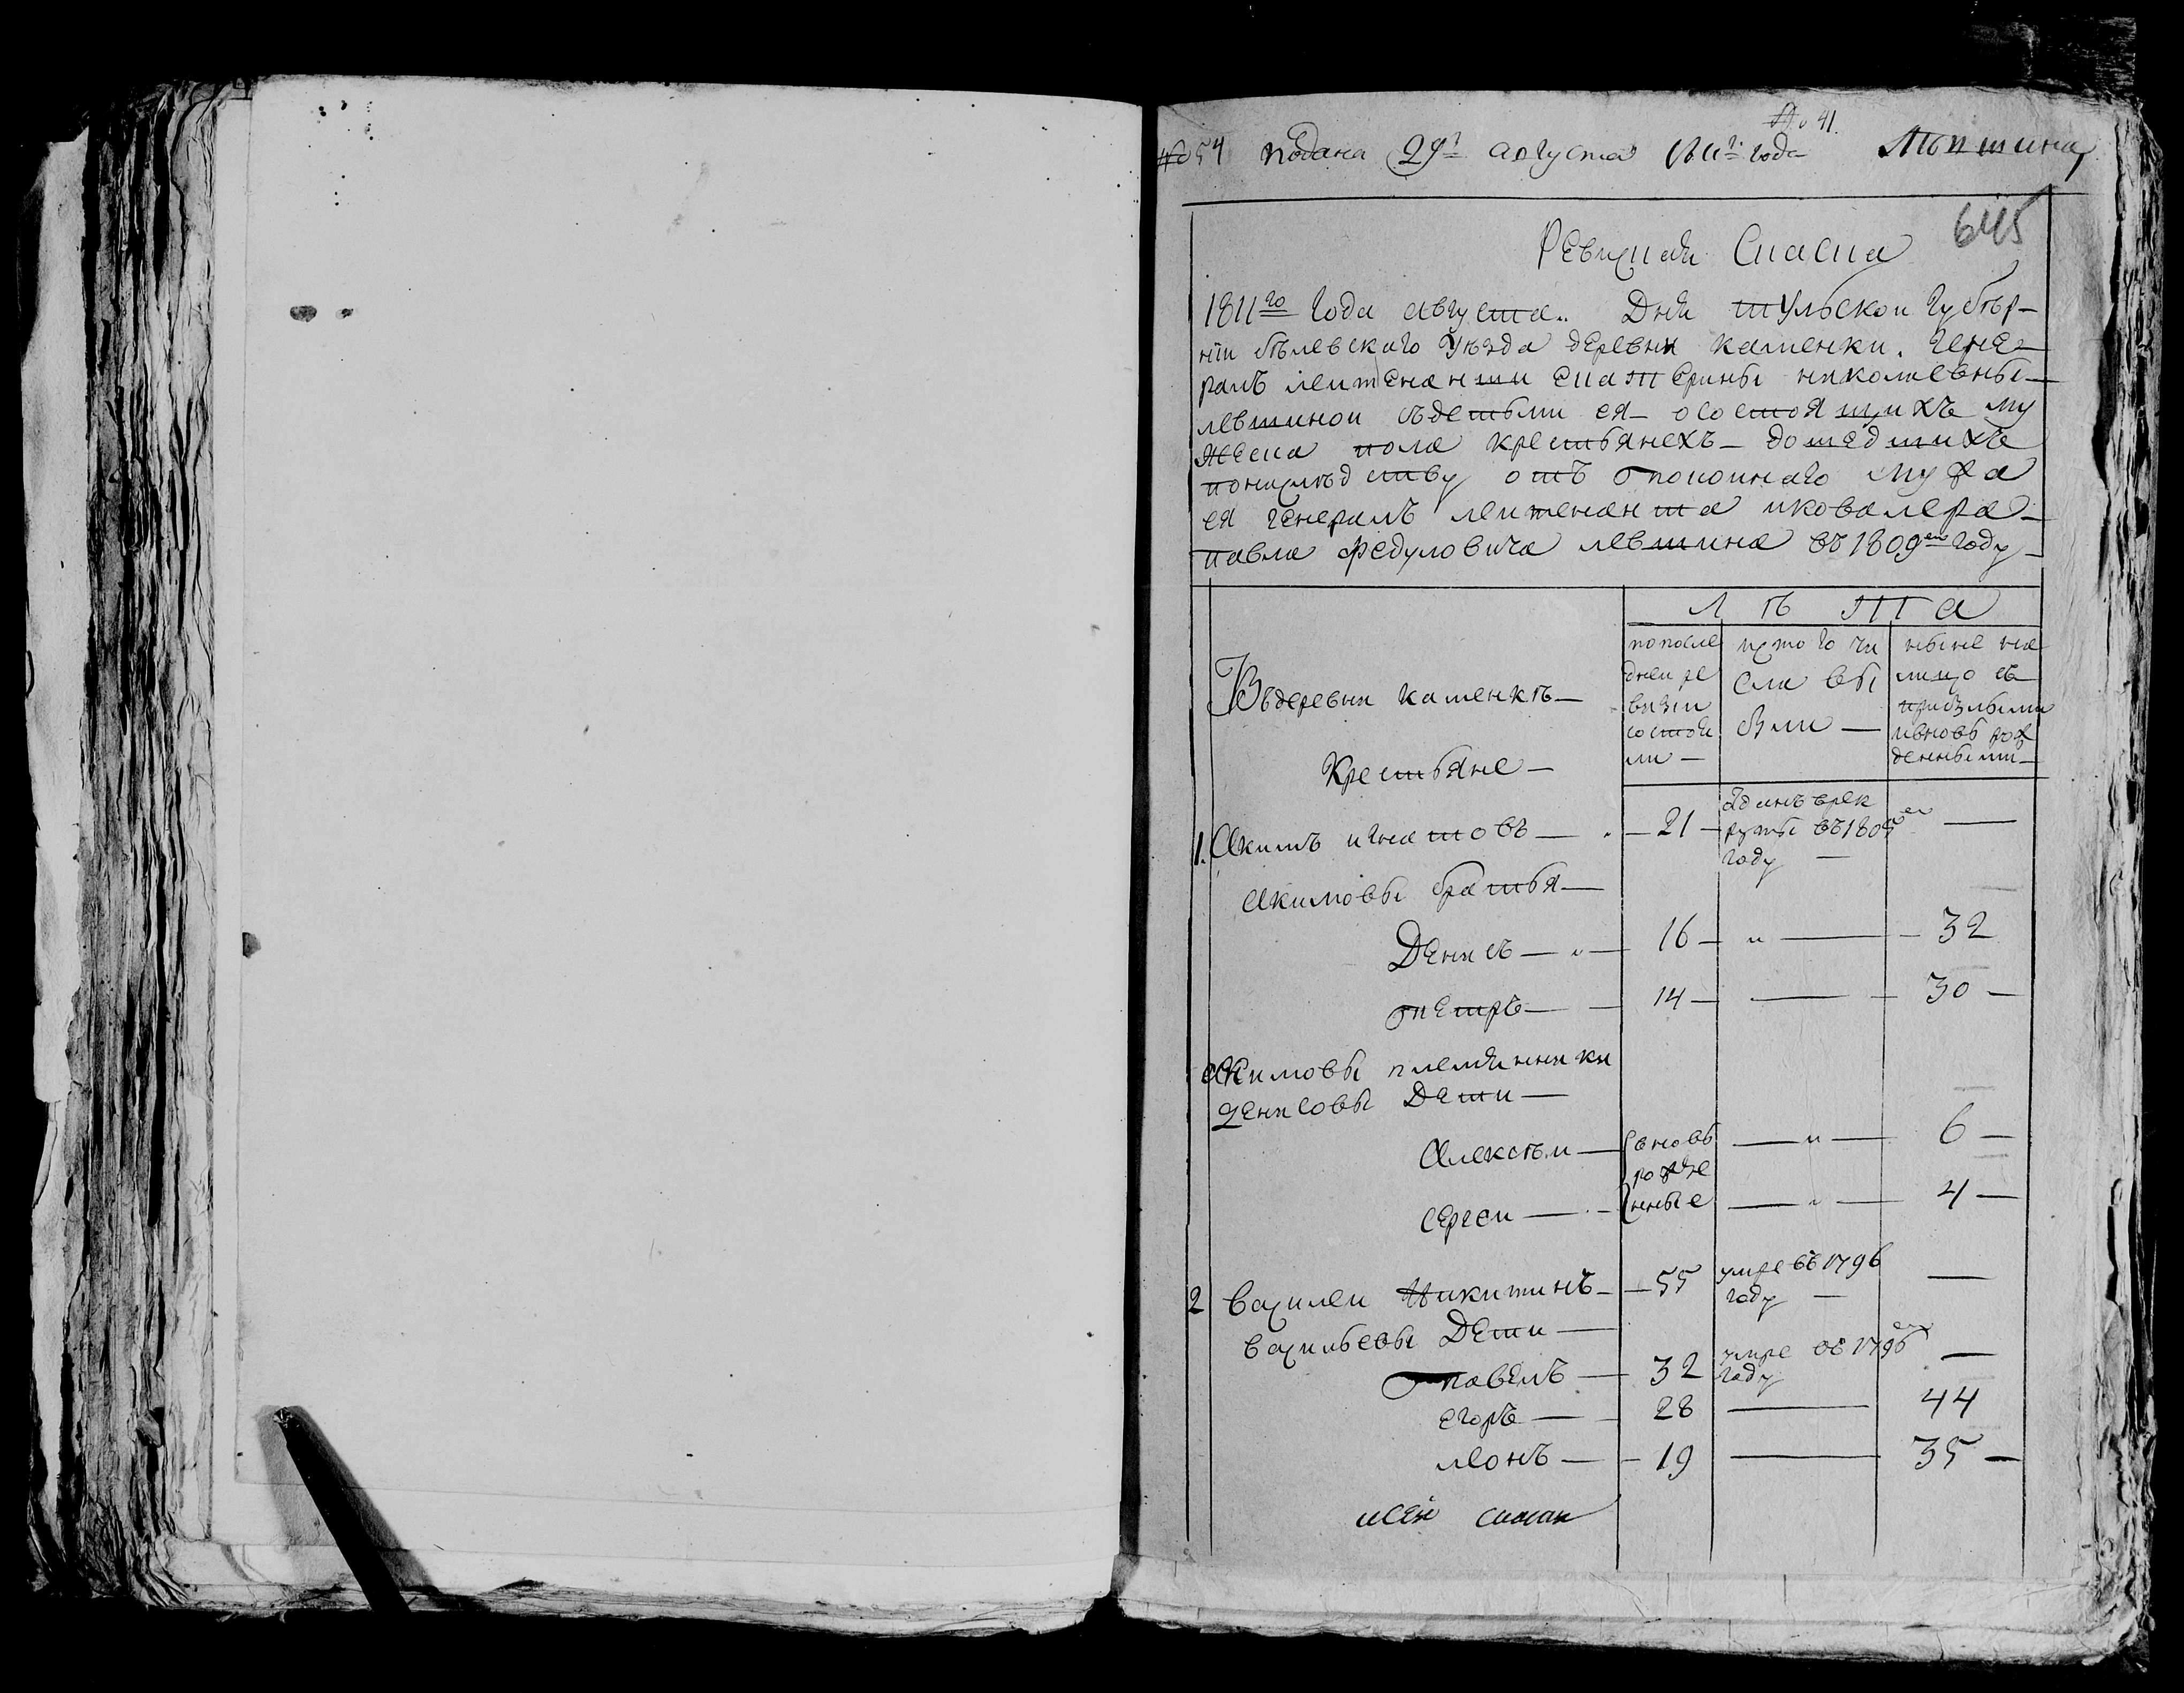 No 41.
No 54 подана 29го августа 1811го года
645
Ревизкая Скаска
1811го года августа .. Дня тульской губер-
нии белевского уезда деревни каменки. гене-
ралъ лейтенанши екатерины николаевны
левшиной съдетьми ея о состоящихъ му
жеска пола крестьянехъ дошедшихъ
понаследству отъ покоинаго мужа
ея генералъ леитенанта иковалера
павла федуловича левшина въ 1809ем году
Лѣта
Въдеревни каменкѣ
Крестьяне
попосле дней ре визіи состоя ли
изтого чи сла вы были
ныне на лицо съ прибылыми ивновь рож денными
1. Акимъ игнатовъ 21 Аданъ врек руты въ 1805м году —
Акимовы братья
Денисъ 16 " 32
петръ 14 — 30
Акимовы племянники
денисовы Дети
Алексѣи вновь рожде нные " 6
сергеи " 4
2 василеи Никитинъ 55 умре въ 1796 году —
васильевы Дети
павелъ 32 умре въ 1796 году —
егоръ 28 — 44
леонъ 19 — 35